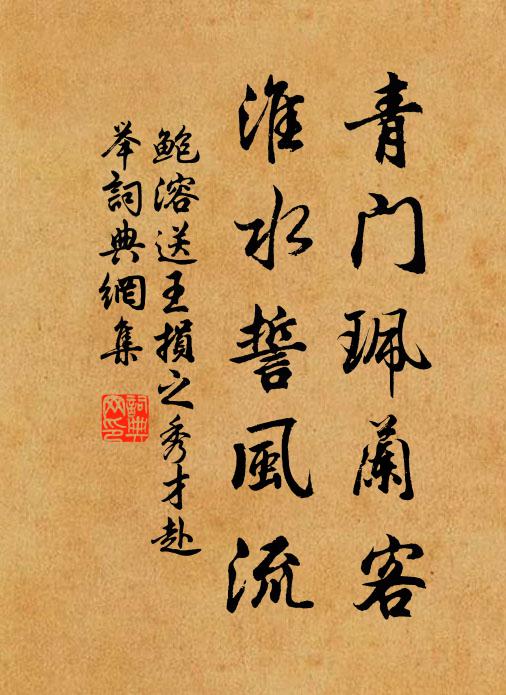 青门珮蘭客
淮水誓風流
鲍溶送王損之秀才赴
举詞典網集
詞典網印